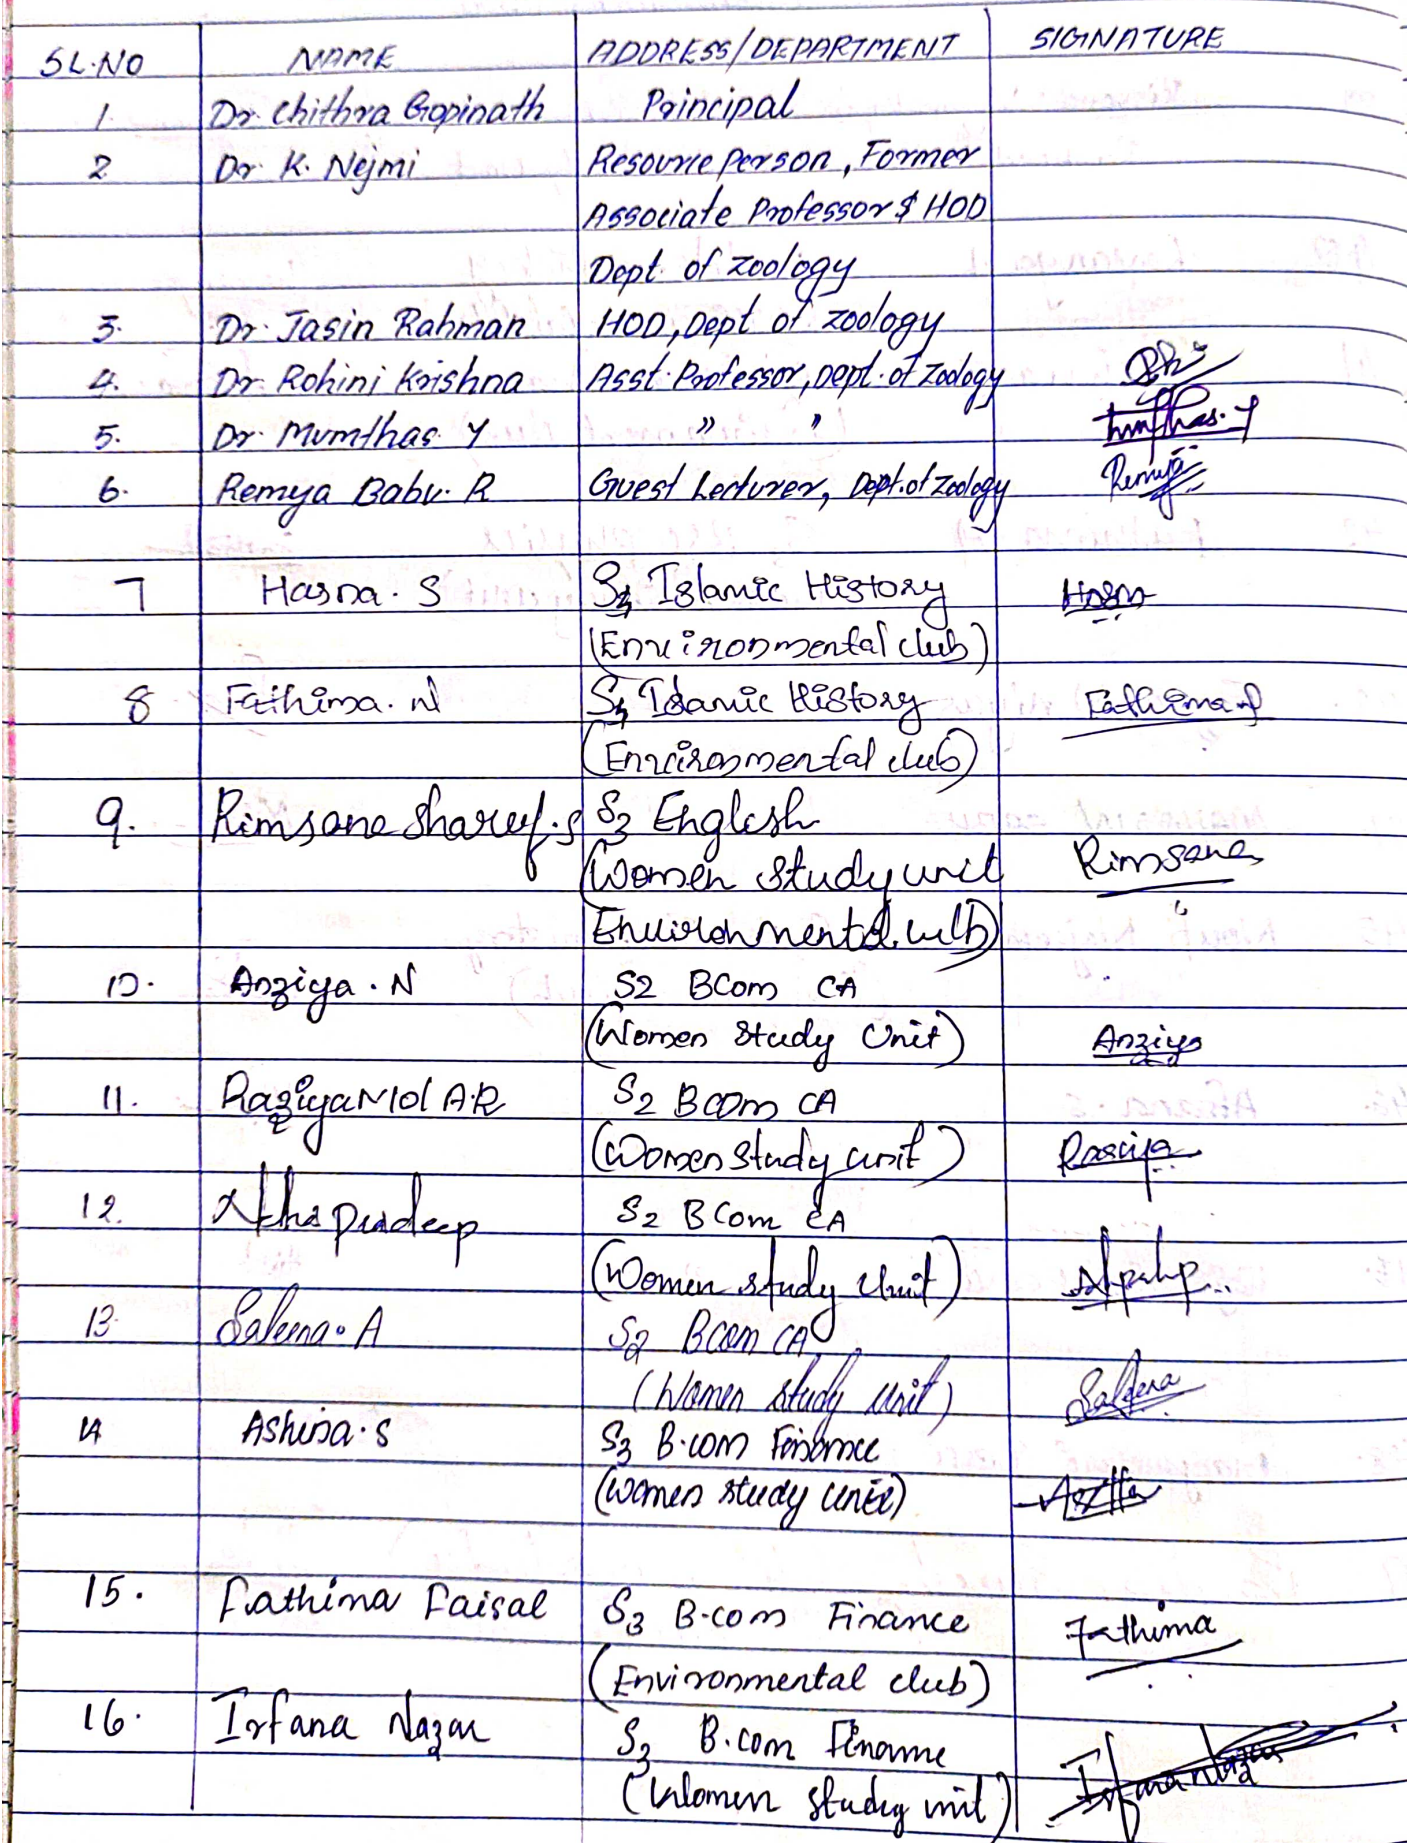 SL.NO NAME ADDRESS/DEPARTMENT SIGNATURE
1. Dr. Chithra Gopinath Principal
2 Dr. K. Nejmi Resource person, Former
Associate Professor & HOD
Dept. of zoology
3. Dr. Jasin Rahman HOD, Dept of zoology
4. Dr. Rohini Krishna Asst. Professor, Dept. of Zoology
5. Dr. Mumthas Y " " Mumthas.Y
6. Remya Babu. R Guest Lecturer, Dept. of Zoology Remya
7 Hasna. S Islamic History Hasna
(Environmental club)
8 Fathima. N Islamic History Fathima N
(Environmental club)
9. Rimsana Shareef. S S3 English
(Women study unit Rimsana
Environmental club)
10. Anziya. N S2 BCom CA
(Women Study Unit) Anziya
11. Raziya Mol A.R S2 BCom CA
(Women study unit) Raziya
12. Pradeep S2 BCom CA
(Women study Unit)
13. Saleena. A S2 BCom CA
(Women study unit) Saleena
14 Ashina. S S3 B.com Finance
(Women study unit)
15. Fathima Faisal S3 B.com Finance Fathima
(Environmental club)
16. Irfana Nazar S3 B.com Finance Irfana Nazar
(Women study unit)